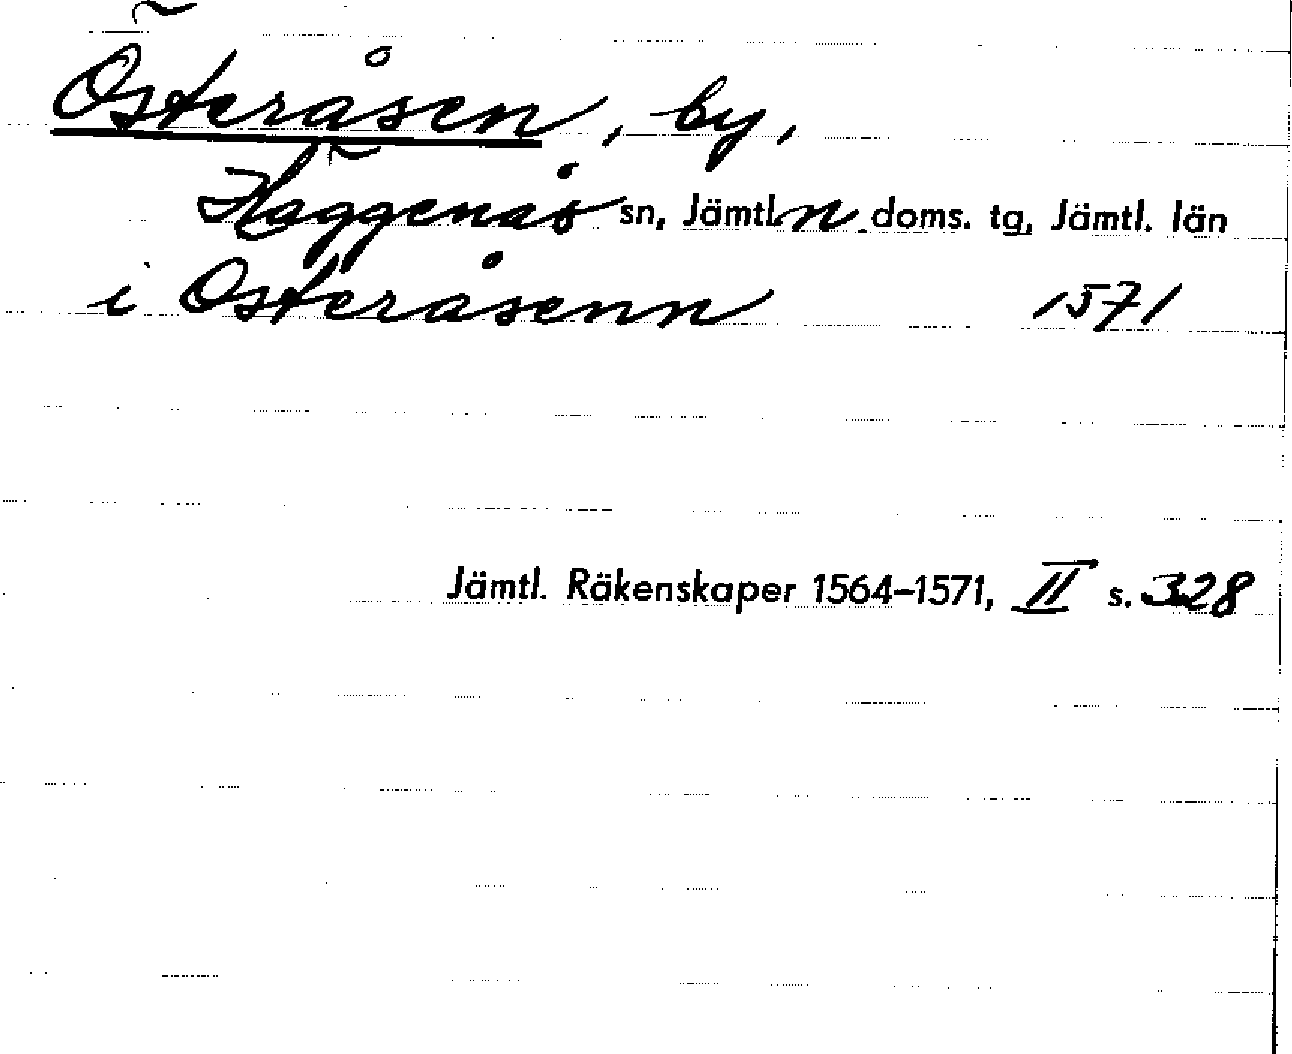 Österåsen, by,
Häggenås sn, Jämtl. n doms. tg, Jämtl. län
i Österåsenn 1571
Jämtl. Räkenskaper 1564–1571, II s. 328